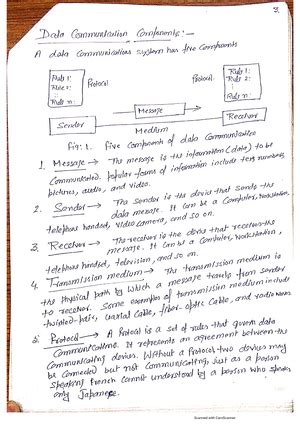 3.
Data Communication Components:-
A data communications system has five components
Rule 1: Protocol Protocol Rule 1:
Rule 2: Rule 2:
: :
Rule n: Rule n:
Message
Sender Medium Receiver
Fig: 1. Five Components of Data Communication
1. Message → The message is the information (data) to be
communicated. Popular forms of information include text, numbers,
pictures, audio, and video.
2. Sender → The Sender is the device that sends the
data message. It can be a Computer, workstation,
telephone handset, video camera, and so on.
3. Receiver → The receiver is the device that receives the
message. It can be a Computer, workstation,
telephone handset, television, and so on.
4. Transmission medium → The transmission medium is
the physical path by which a message travels from sender
to receiver. Some examples of transmission medium include
twisted-pair, coaxial cable, fiber-optic cable, and radio waves
5. Protocol → A Protocol is a set of rules that govern data
communications. It represents an agreement between the
communicating devices. Without a Protocol two devices may
be connected but not communicating, just as a person
speaking French cannot understood by a person who speaks
only Japanese.
Scanned with CamScanner